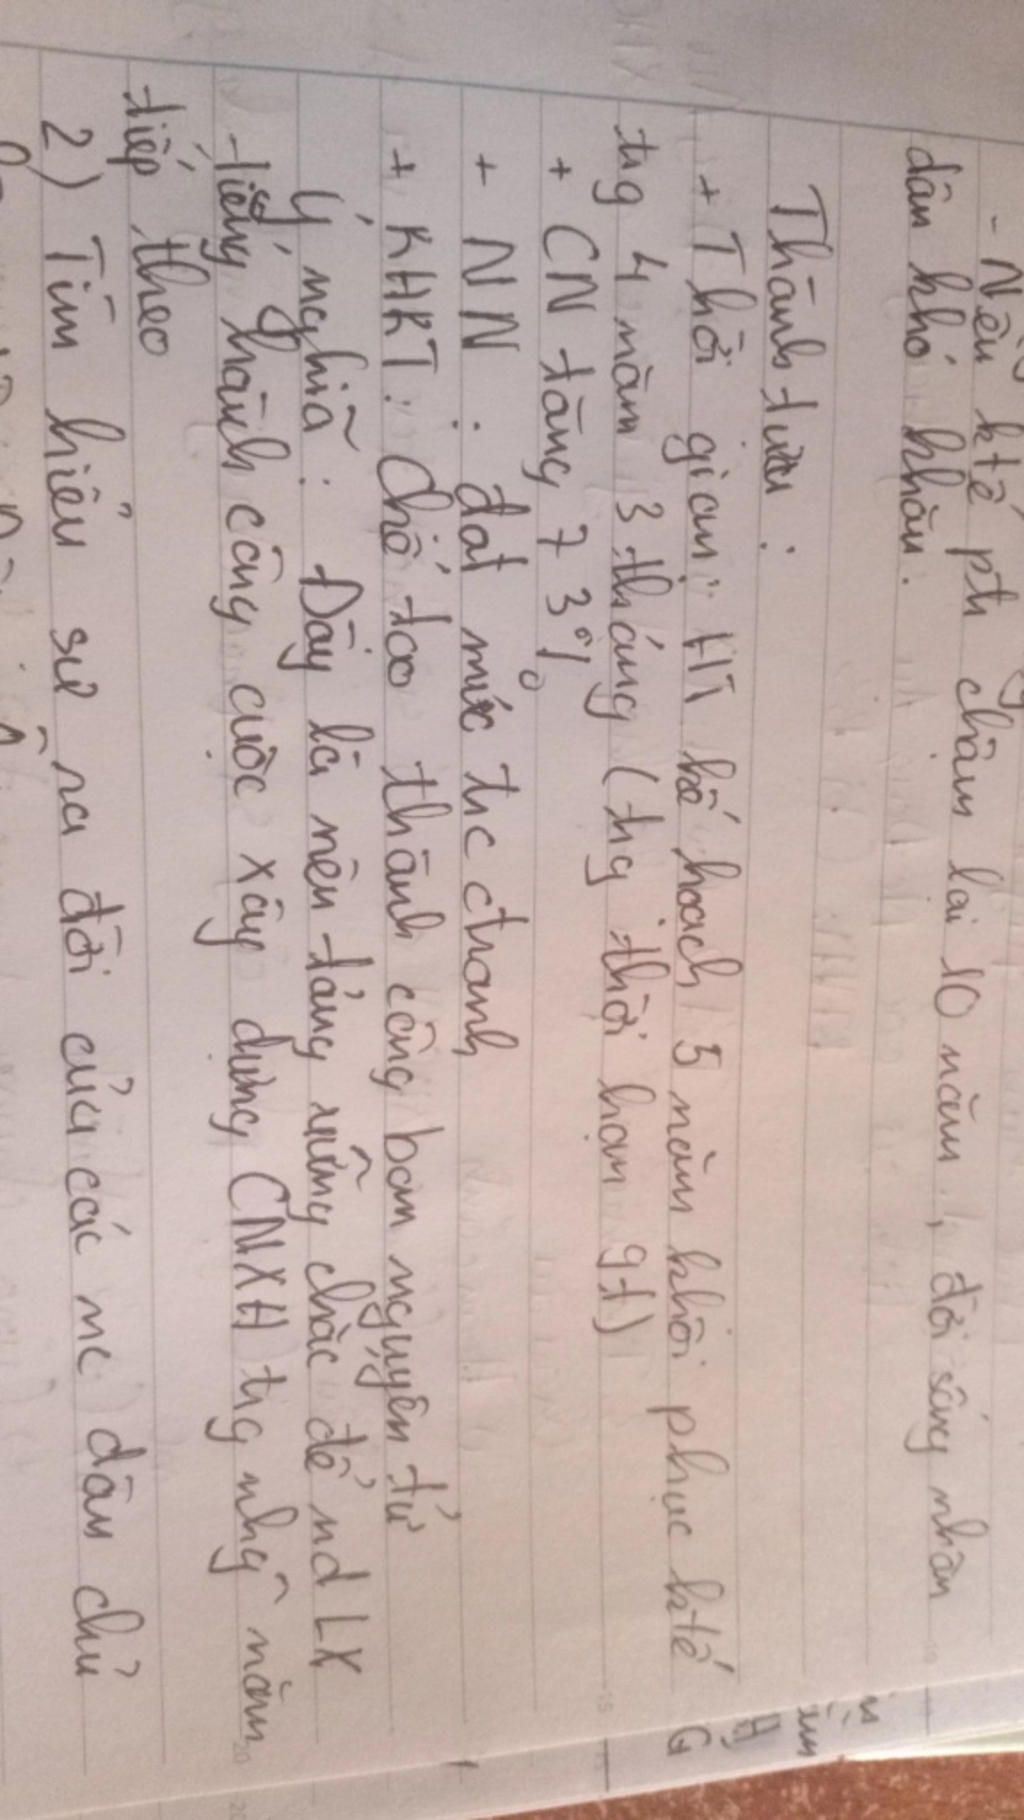 - Nền ktế pti chậm lại 10 năm, đời sống nhân
dân khó khăn.
Thành tựu:
+ Thời gian: HT kế hoạch 5 năm khôi phục ktế
tig 4 năm 3 tháng (tig thời hạn 9t)
+ CN tăng 73%
+ NN: đạt mức tic ctranh
+ KHKT: Chế tạo thành công bom nguyên tử
Ý nghĩa: Đây là nền tảng vững chắc để nd LX
tiếng hành công cuộc xây dựng CNXH tig nhg̃ năm
tiếp theo
2) Tìm hiểu sự ra đời của các nc dân chủ